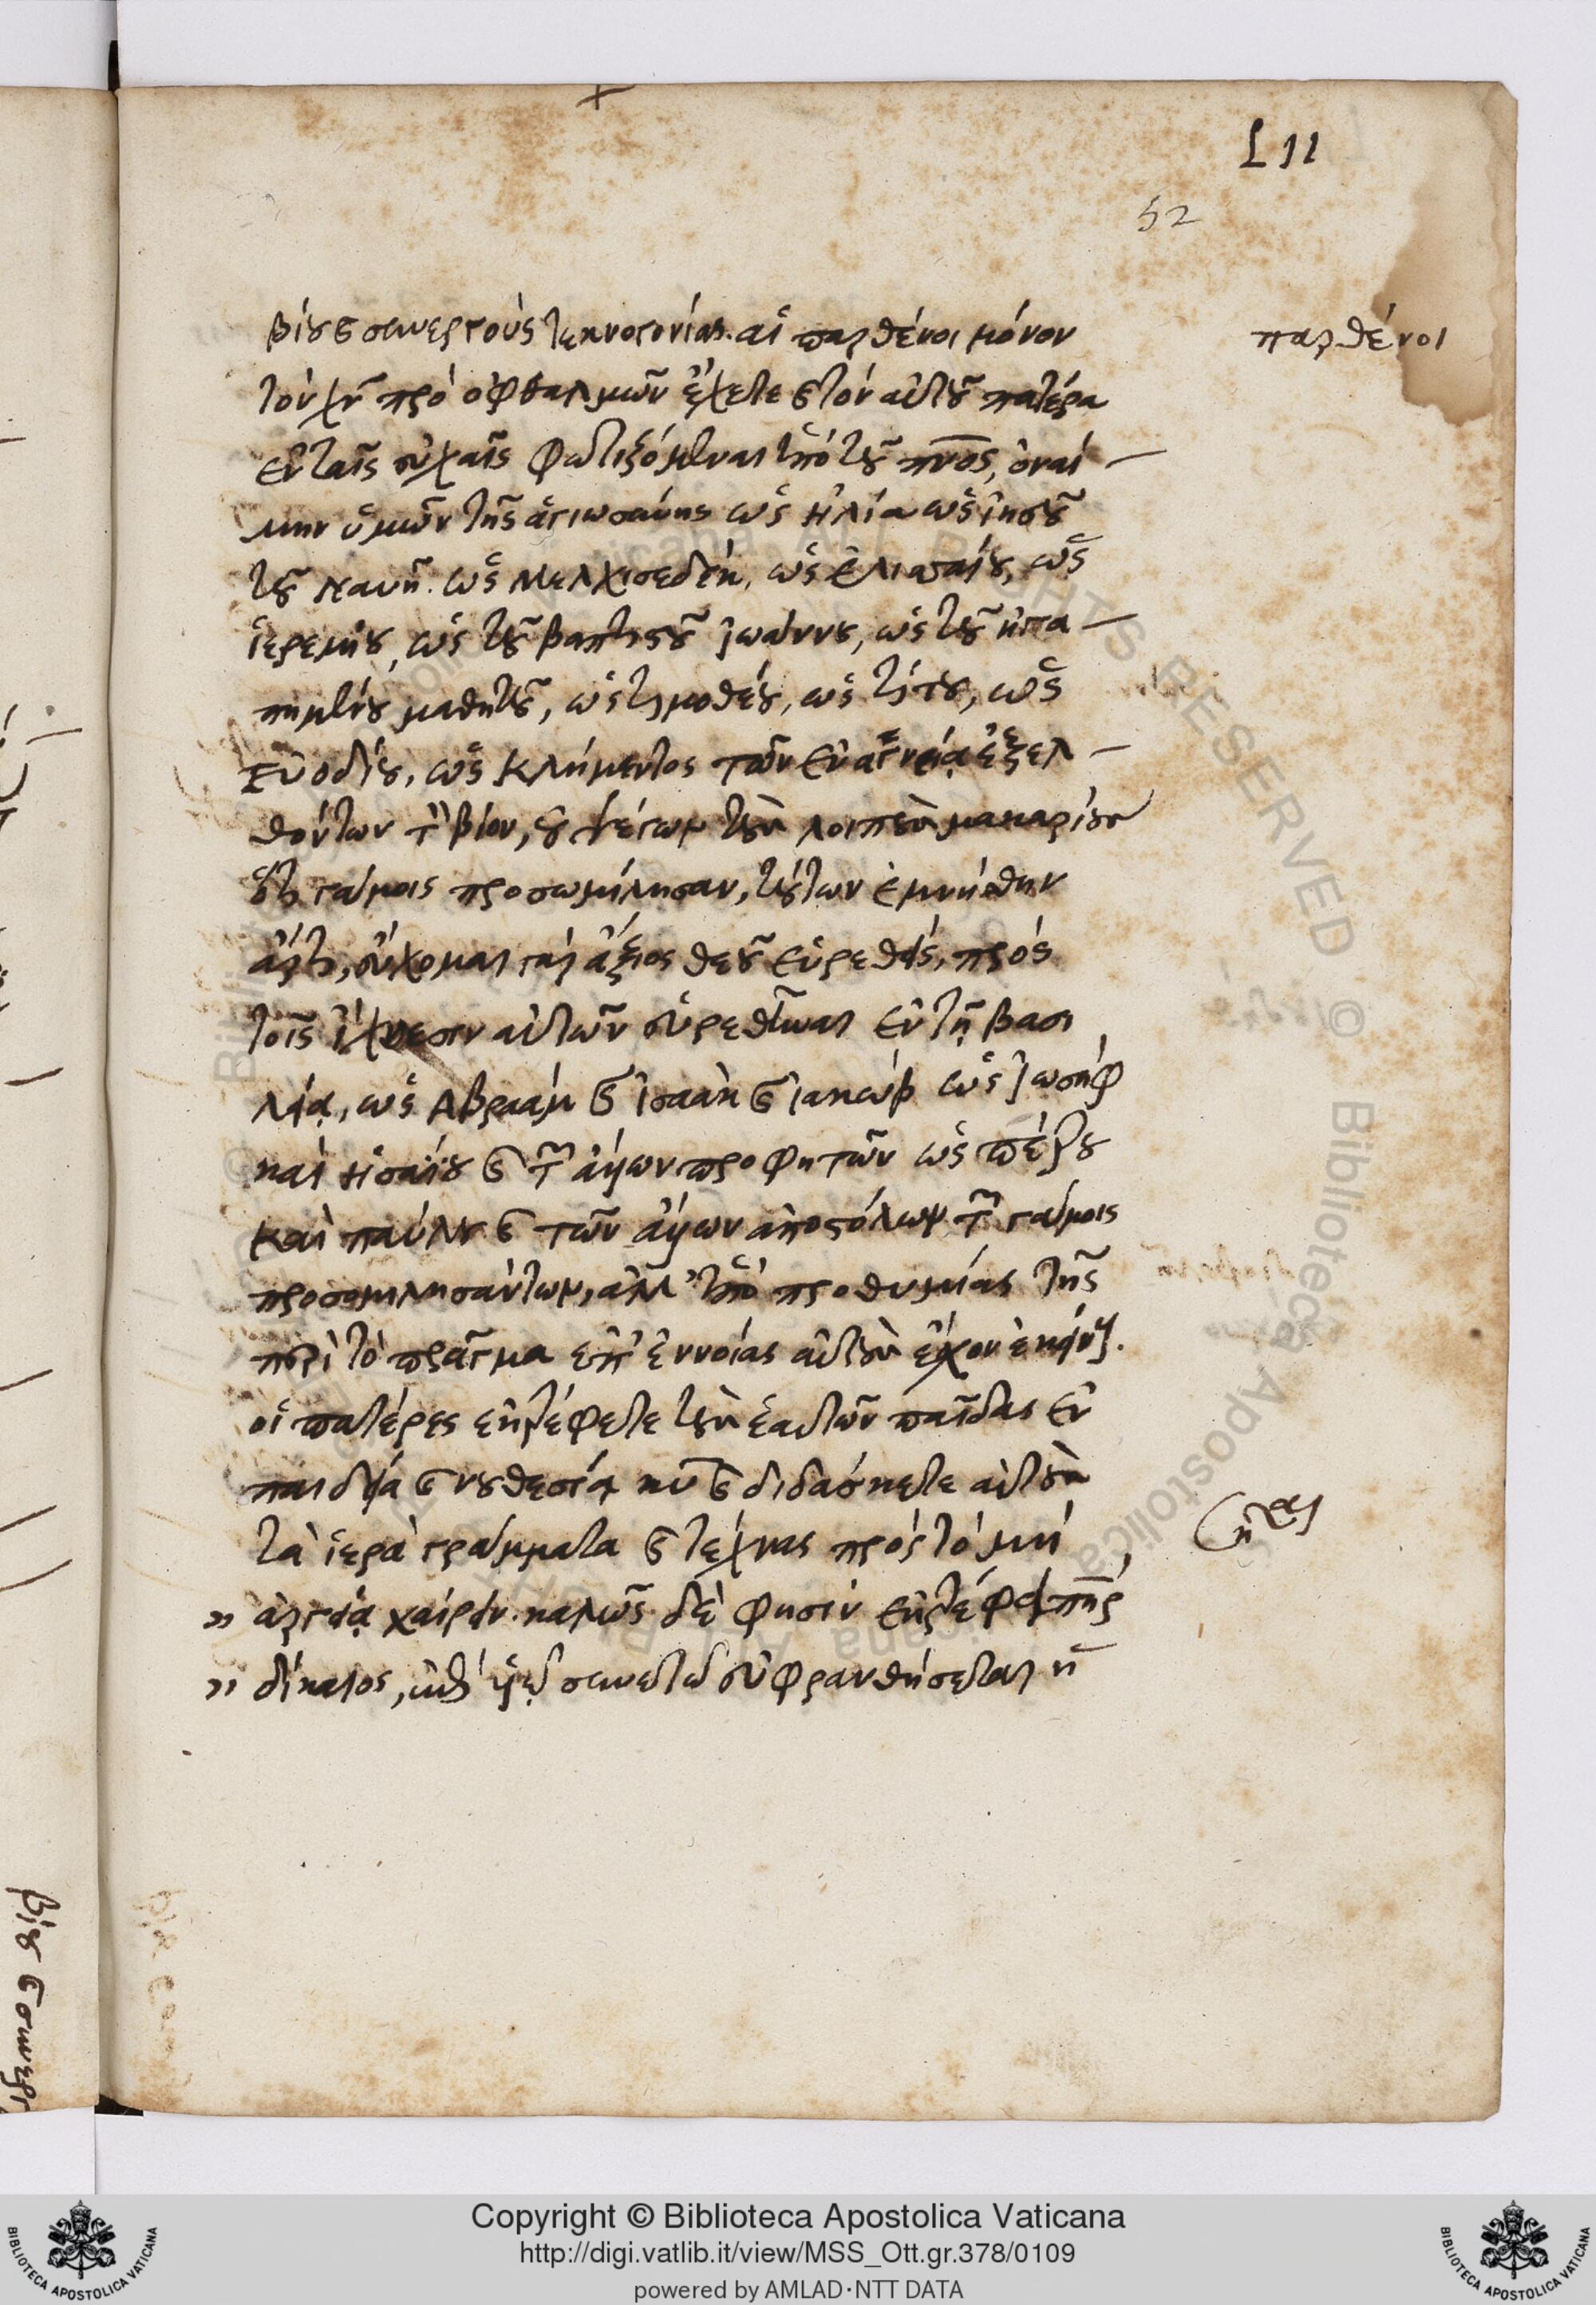 L 11
52
βίου καὶ συνεργοὺς τεκνογονίας. αἱ παρθένοι μόνον
παρθένοι
τὸν χν̅ πρὸ ὀφθαλμῶν ἔχετε καὶ τὸν αὐτοῦ πατέρα
ἐν ταῖς εὐχαῖς φωτιζόμεναι ὑπὸ τοῦ πνο̅ς, ὀναί
μην ὑμῶν τῆς ἁγιωσύνης ὡς ἠλία ὡς ἰησοῦ
τοῦ ναυῆ. ὡς μελχισεδέκ, ὡς ἐλισσαίου, ὡς
ἱερεμίου, ὡς τοῦ βαπτιστοῦ ἰωάννου, ὡς τοῦ ἠγα
πημένου μαθητοῦ, ὡς τιμοθέου, ὡς τίτου, ὡς
εὐοδίου, ὡς κλήμεντος τῶν ἐν ἁγνείᾳ ἐξελ
θόντων τὸν βίον, οὐ ψέγων τοὺς λοιποὺς μακαρίους
ὅτι γάμοις προσωμίλησαν, τούτων ἐμνήσθην
ἄρτι, εὔχομαι γὰρ ἄξιος θεοῦ εὑρεθείς, πρὸς
τοῖς ἴχνεσιν αὐτῶν εὑρεθῆναι ἐν τῇ βασι
λείᾳ, ὡς ἀβραὰμ καὶ ἰσαὰκ καὶ ἰακώβ ὡς ἰωσήφ
καὶ ἠσαΐου καὶ τῶν ἁγίων προφητῶν ὡς πέτρου
καὶ παύλου καὶ τῶν ἁγίων ἀποστόλων τῶν γάμοις
προσομιλησάντων, ἀλλ' ὑπὸ προθυμίας τῆς
περὶ τὸ πρᾶγμα ἐπ' ἐννοίας αὐτοὺς ἔχον ἐκείνων.
οἱ πατέρες ἐκτρέφετε τοὺς ἑαυτῶν παῖδας ἐν
παιδείᾳ καὶ νουθεσίᾳ κυ̅ καὶ διδάσκετε αὐτοὺς
τὰ ἱερὰ γράμματα καὶ τέχνας πρὸς τὸ μὴ
» ἀργείᾳ χαίρειν. καλῶς δὲ φησὶν ἐκτρέφει πη̅ρ
» δίκαιος, ἐπὶ υἱῷ συνετῷ εὐφρανθήσεται ἡ
βίου καὶ συνεργ